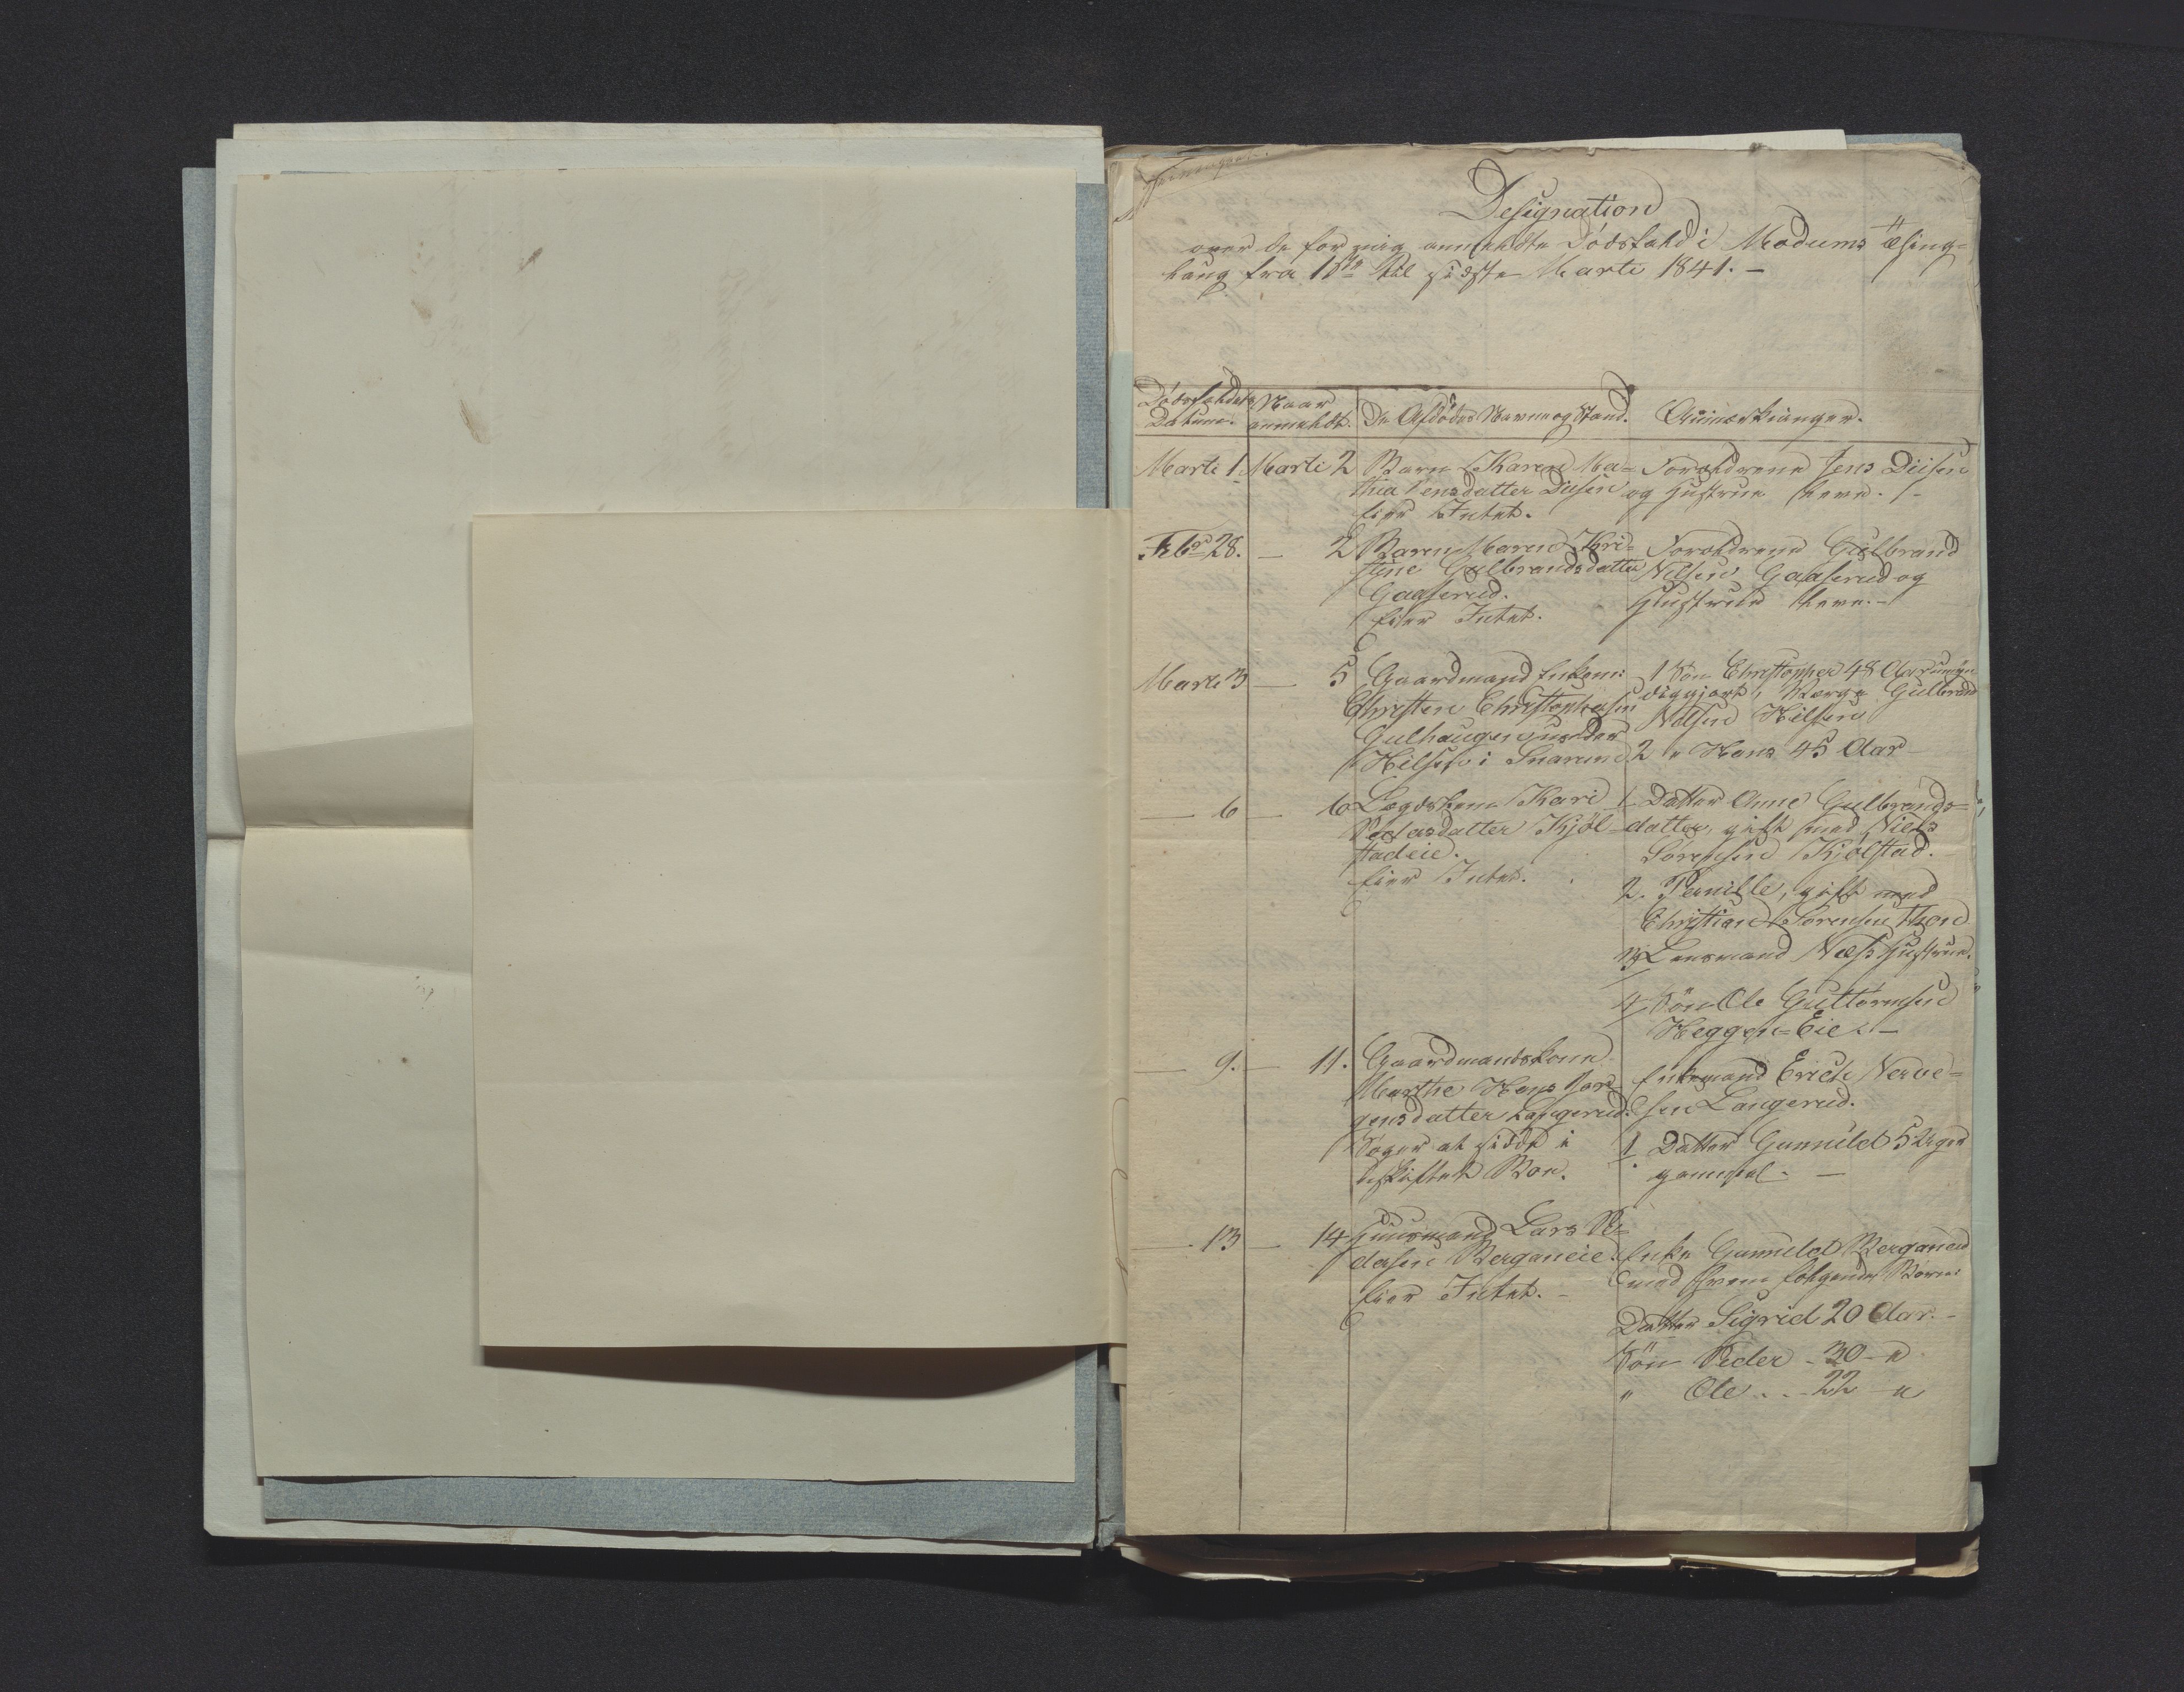 Designation
over de for mig anmeldte Dödsfald i Modums Thing-
laug fra 1ste til sidste Martii 1841. -
Dödsfaldets Datum.
Naar anmeldt.
De Afdödes Navne og Stand.
Anmærkninger.
Marti 1 Marti 2 Barn Karen Ma-
thea Jensdatter Diisen
Eier Intet.
Forældrene Jens Diisen
og Hustrue leve. -
Febr 28. — 2 Barn Maren Kri-
stine Gulbrandsdatter
Gaaserud.
Eier Intet.
Forældrene Gulbrand
Nilsen Gaaserud og
Hustrue leve. -
Marti 3 — 5 Gaardmand Enkem:
Christen Christophersen
Gulhaugen under
Hilsen i Snarum
1 Sön Christopher 48 Aar umyn
diggjort, Værge Gulbrand
Nilsen Hilsen
2 " Hans 45 Aar
— 6 — 6 Lægdskone Kari
Pedersdatter Kjöl-
stadeie.
Eier Intet.
1 Datter Anne Gulbrands-
datter, gift med Niels
Sörensen Kjölstad.
2. Pernille, gift med
Christian Sorensen Thon
3 Lensmand Næss Hustrue.
4 Sön Ole Guttormsen
Heggen-Eie. -
— 9. — 11. Gaardmandskone
Marthe Hans Jör-
gensdatter Langerud.
Söger at sidde i
uskiftet Boe.
Enkemand Erich Narve-
sen Langerud.
1 Datter Gunnild 5 Uger
gammel. —
— 13 — 14 Huusmand Lars Pe-
dersen Berganeie.
Eier Intet. -
Enke Gunnild Berganeie
med hvem fölgende Börn:
Datter Sigrid 20 Aar. -
Sön Peder - 30 - "
" Ole . . - 22 - "